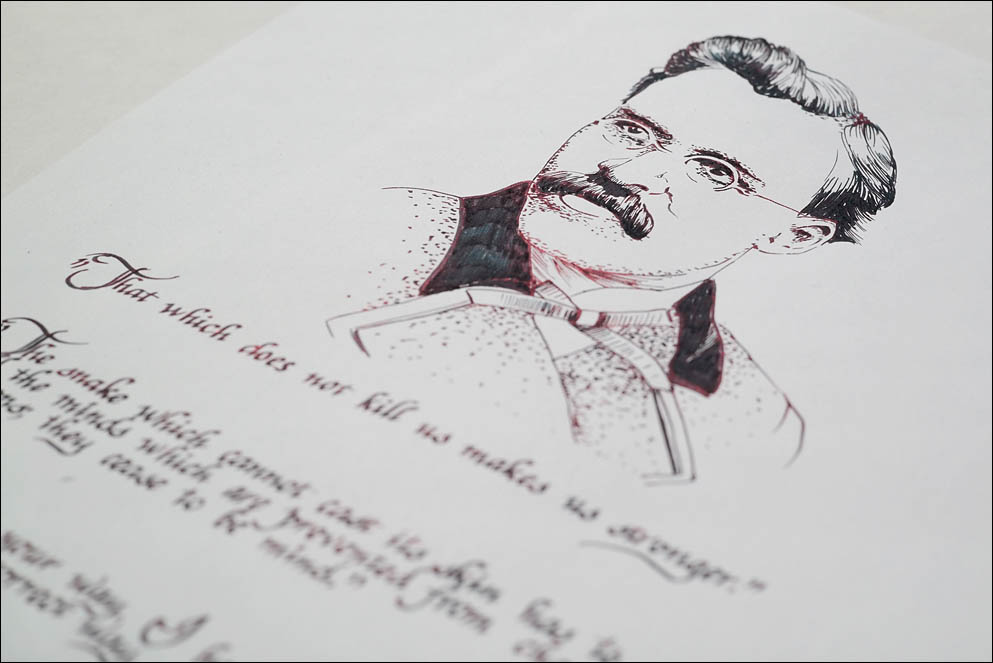 "That which does not kill us makes us stronger."
"The snake which cannot cast its skin has to
the minds which are prevented from
they cease to be mind."
your